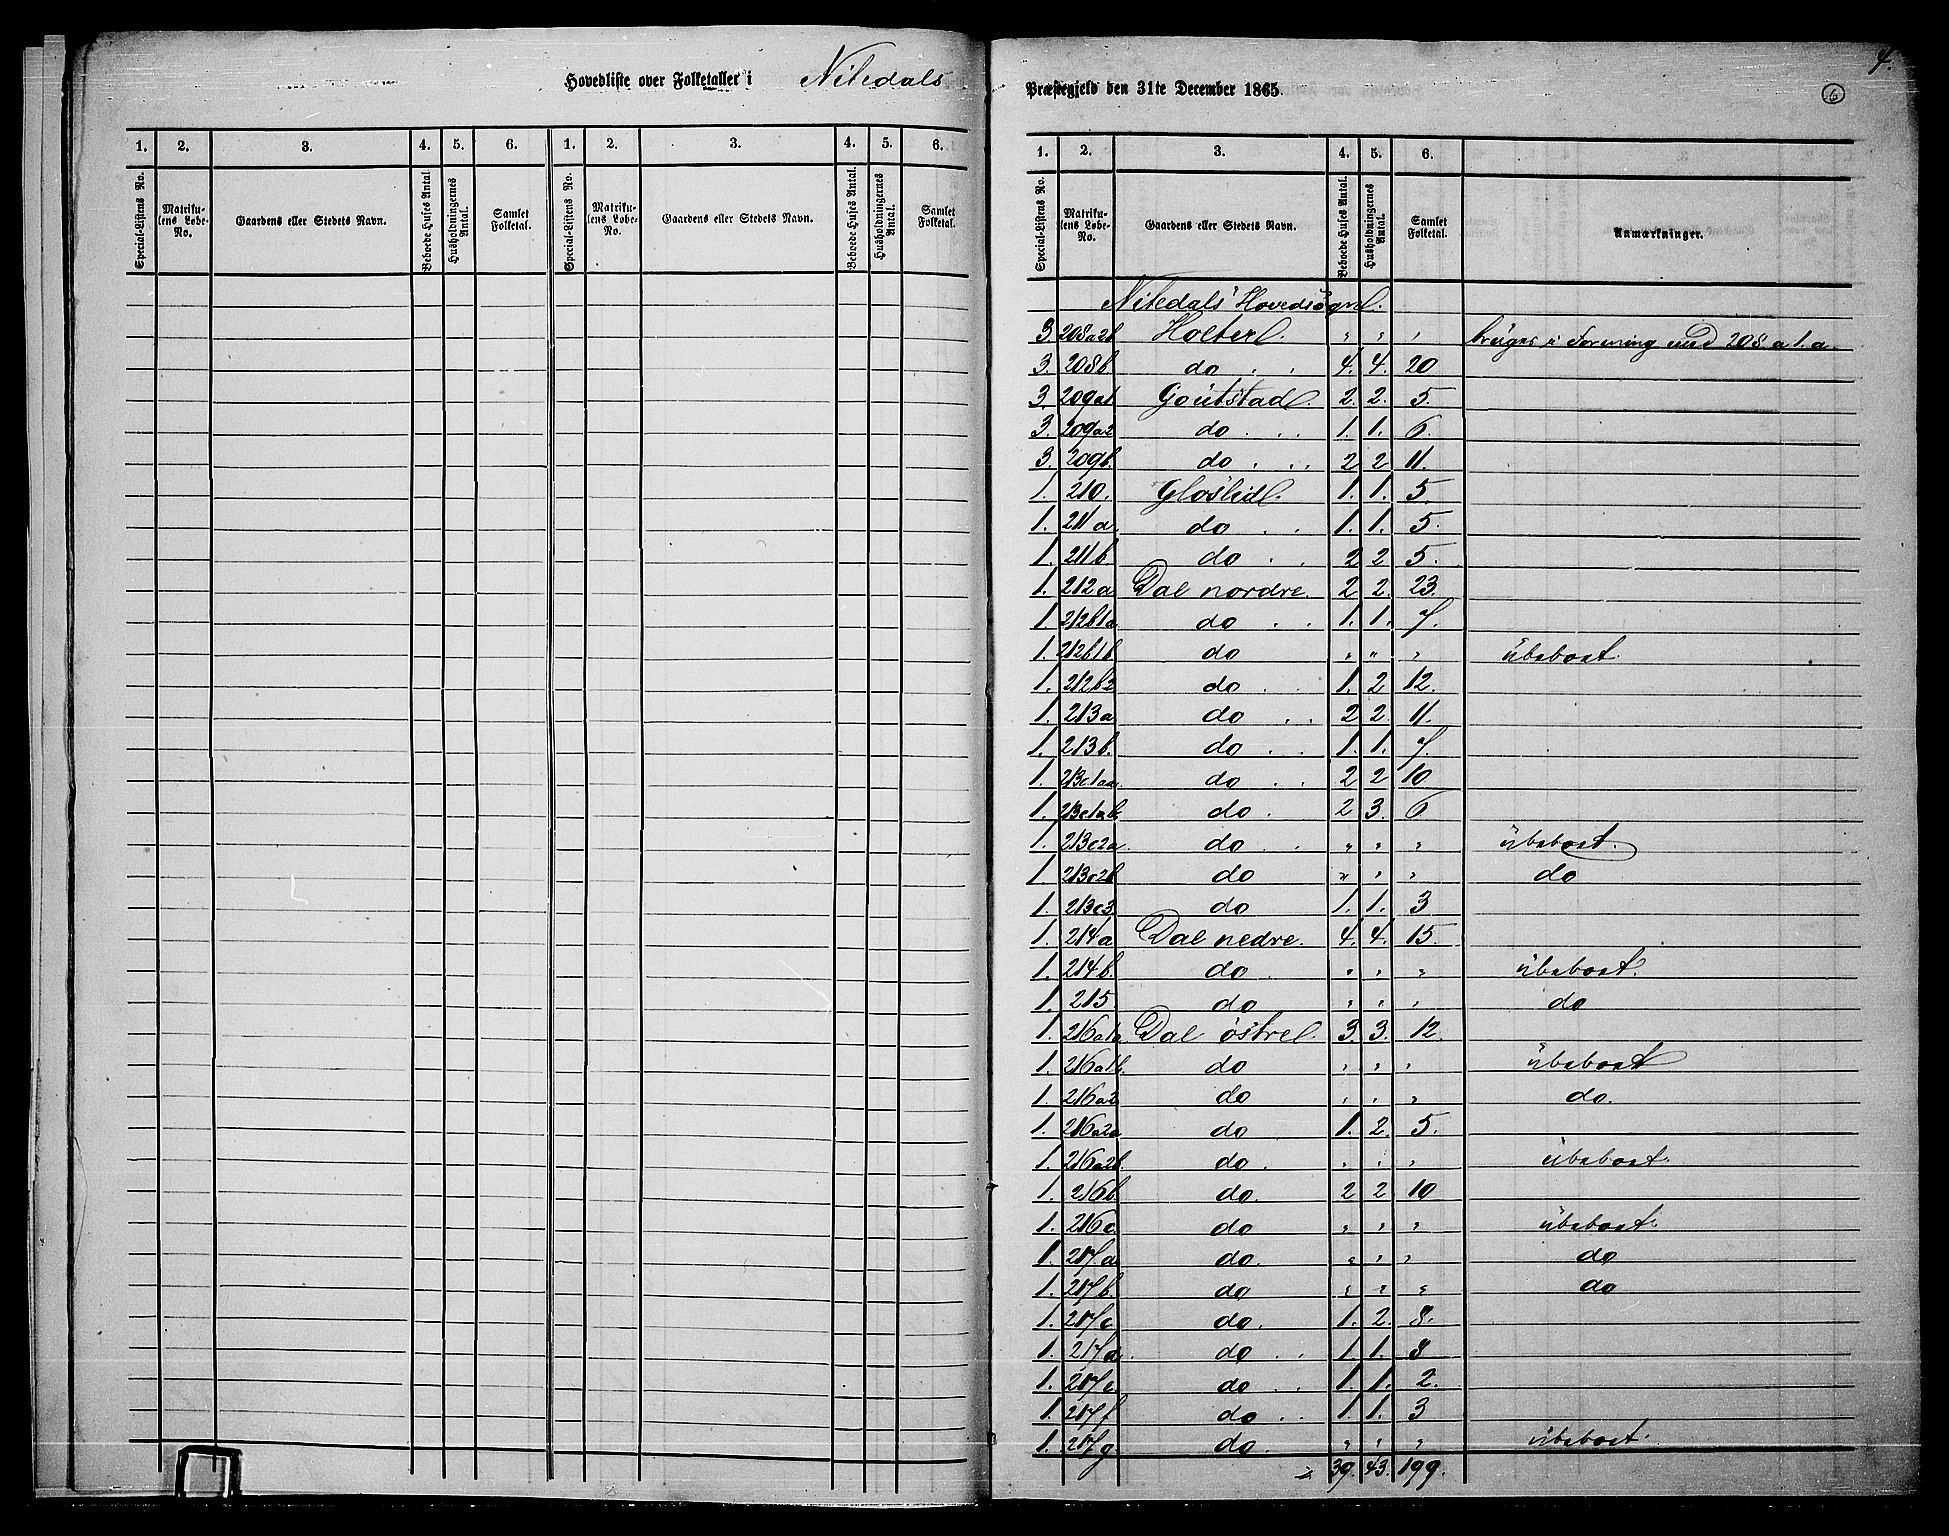 Hovedliste over Folketallet i Nitedals
1. 2. 3. 4. 5. 6. 1. 2. 3. 4. 5. 6.
Special-Listens No. Matriku-lens Løbe-No. Gaardens eller Stedets Navn. Beboede Huses Antal. Husholdningernes Antal. Samlet Folketal. Special-Listens No. Matriku-lens Løbe-No. Gaardens eller Stedets Navn. Beboede Huses Antal. Husholdningernes Antal. Samlet Folketal.
4.
Præstegjeld den 31te December 1865. 6
1. 2. 3. 4. 5. 6.
Special-Listens No. Matriku-lens Løbe-No. Gaardens eller Stedets Navn. Beboede Huses Antal. Husholdningernes Antal. Samlet Folketal. Anmærkninger.
Nitedals Hovedsogn.
3. 208a2b Holter. " " " bruges i Forening med 208 a 1. a.
3. 208b. do 4. 4. 20
3 209a1 Goutstad. 2. 2. 5.
3. 209a2 do 1. 1. 6.
3. 209b. do 2 2 11.
1. 210. Gloslid. 1. 1. 5.
1. 211a. do 1. 1. 5.
1. 211b. do 2 2 5.
1. 212a Dal nordre. 2 2. 23.
1. 212b1a do 1. 1. 7.
1. 212b1b do " " " ubeboet.
1. 212b2 do 1. 2 12.
1. 213a do 2 2. 11.
1. 213b. do 1. 1. 7.
1. 213c1aa. do 2 2 10
1. 213c1ab. do 2 3. 6
1. 213c2a. do " " " ubeboet.
1. 213c2b do " " " do
1. 213c3. do 1. 1. 3
1. 214a Dal nedre. 4. 4. 15.
1. 214b. do " " " ubeboet.
1. 215. do " " " do
1. 216a1a Dal østre. 3 3. 12.
1. 216a1b. do " " " ubeboet
1. 216a2 do " " " do.
1. 216a2a do 1. 2. 5.
1. 216a2b. do " " " ubeboet.
1. 216b do. 2 2 10
1. 216c do " " " ubeboet.
1. 217a do. " " " do
1. 217b. do " " " do
1. 217c. do. 1. 2. 8.
1. 217d. do 1. 1. 8
1. 217e. do 1. 1. 2.
1. 217f do 1. 1. 3
1. 217g do. " " " ubeboet.
39. 43. 199.